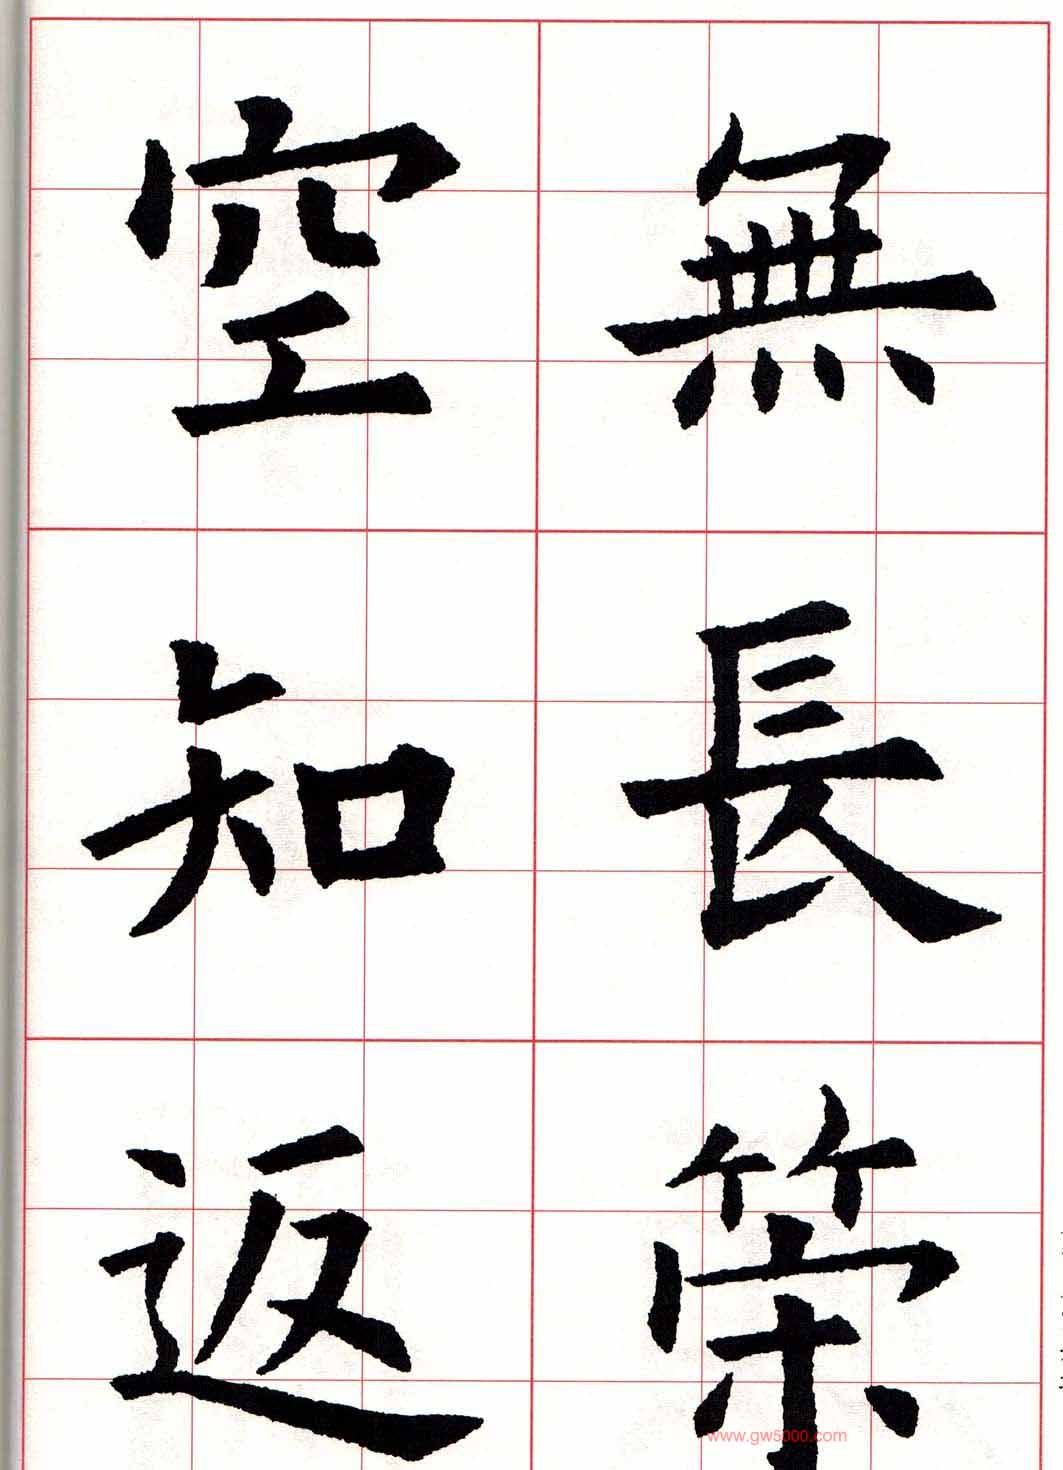 無長策
空知返
www.gw5000.com